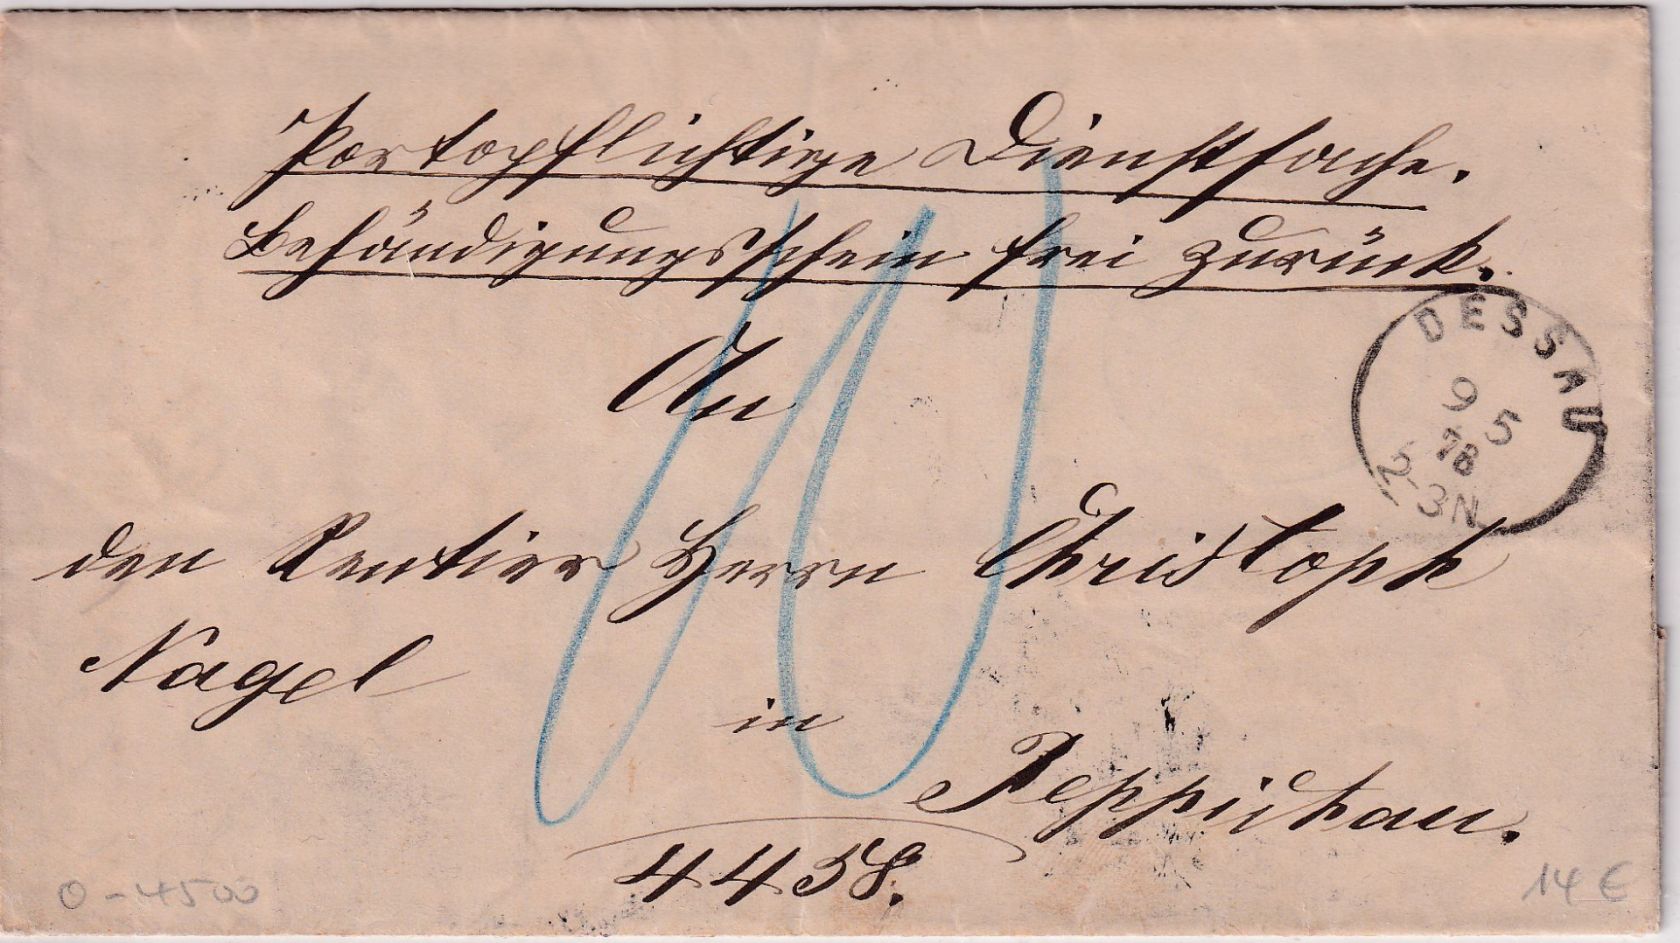 Portopflichtige Dienstsache.
Behändigungsschein frei zurück.
An
DESSAU
9 5
78
2-3N
den Rentier Herrn Christoph
Nagel
in
Reppichau.
4458.
10
0-4500
14 €